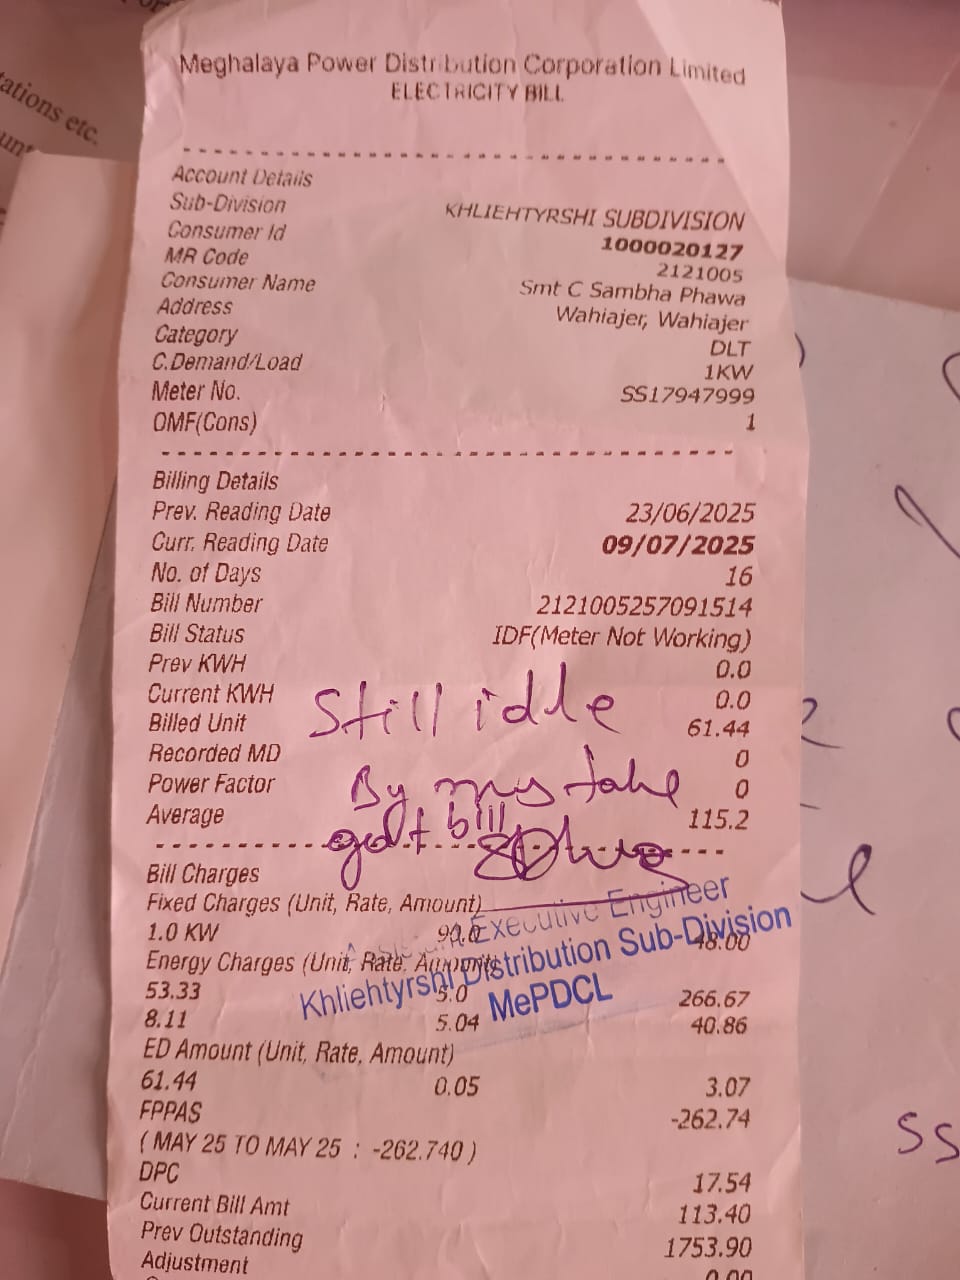 ations etc.
Meghalaya Power Distribution Corporation Limited
ELECTRICITY BILL
Account Details
Sub-Division KHLIEHTYRSHI SUBDIVISION
Consumer Id 1000020127
MR Code 2121005
Consumer Name Smt C Sambha Phawa
Address Wahiajer, Wahiajer
Category DLT
C.Demand/Load 1KW
Meter No. SS17947999
OMF(Cons) 1
Billing Details
Prev. Reading Date 23/06/2025
Curr. Reading Date 09/07/2025
No. of Days 16
Bill Number 2121005257091514
Bill Status IDF(Meter Not Working)
Prev KWH 0.0
Current KWH 0.0
Still idle
Billed Unit 61.44
Recorded MD 0
Power Factor 0
By mistake
Average 115.2
got bill
Bill Charges
Fixed Charges (Unit, Rate, Amount)
1.0 KW 90.0 48.00
Executive Engineer
Khliehtyrshi Distribution Sub-Division
MePDCL
Energy Charges (Unit, Rate, Amount)
53.33 5.0 266.67
8.11 5.04 40.86
ED Amount (Unit, Rate, Amount)
61.44 0.05 3.07
FPPAS -262.74
( MAY 25 TO MAY 25 : -262.740 )
DPC 17.54
Current Bill Amt 113.40
Prev Outstanding 1753.90
Adjustment 0.00
SS